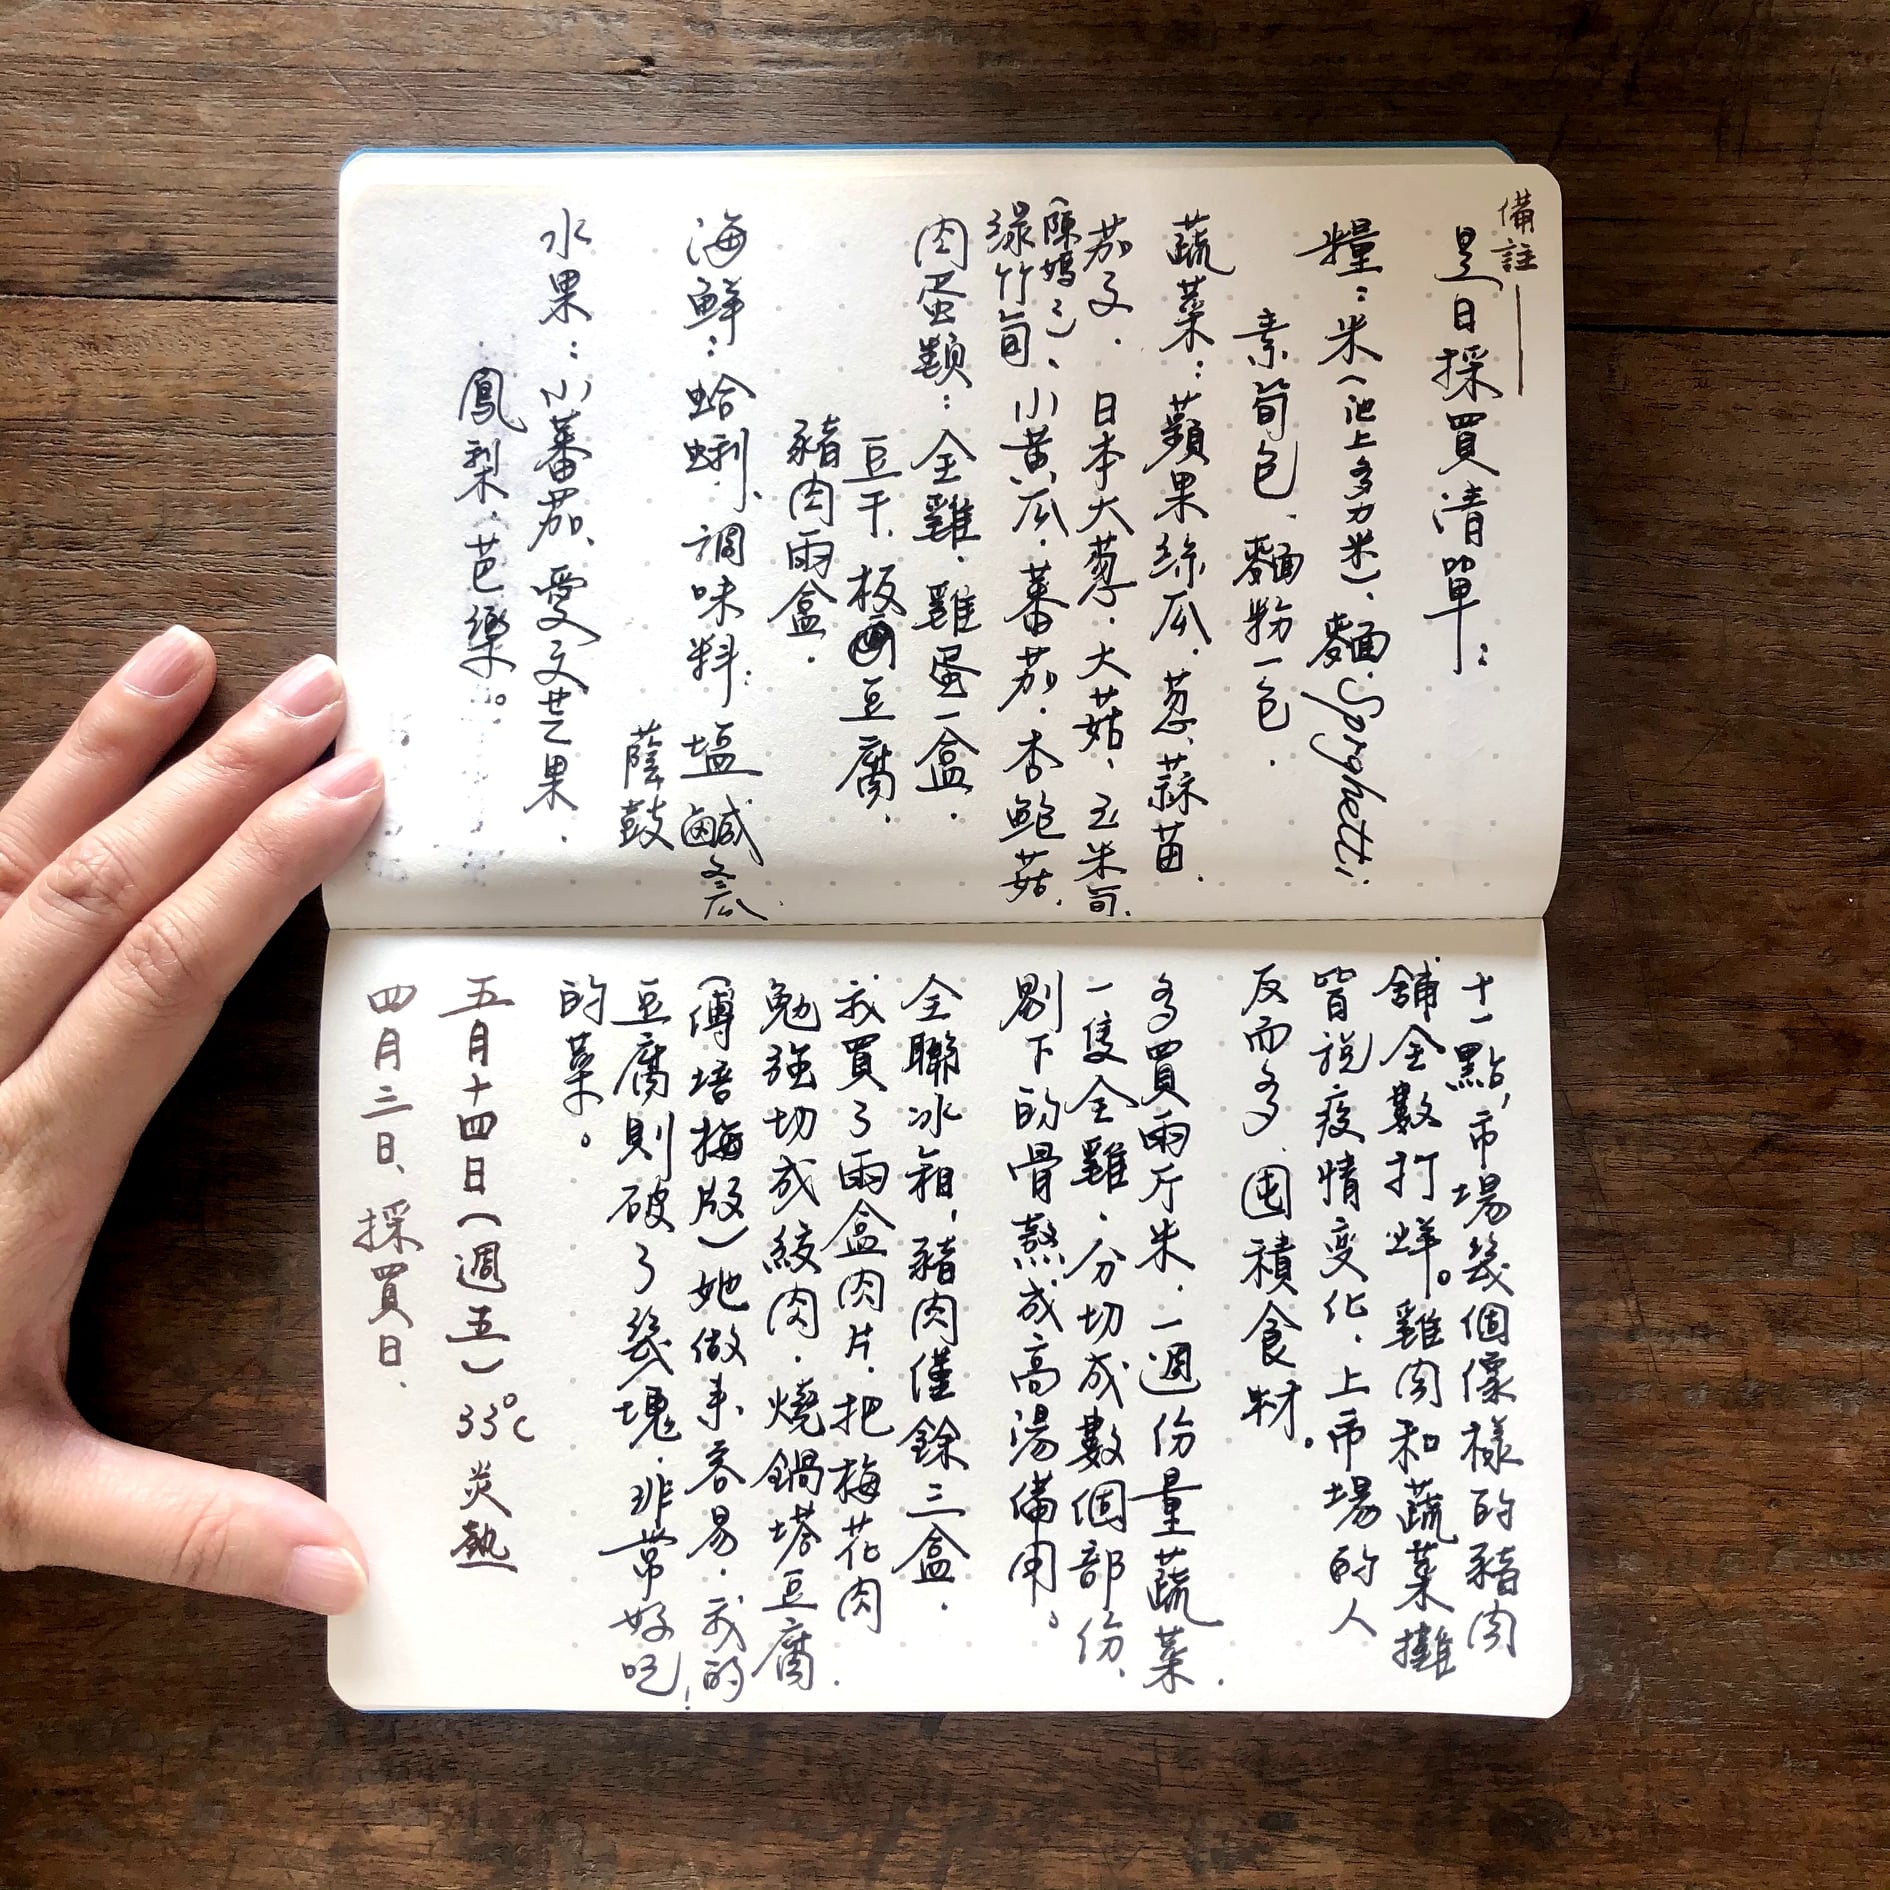 備註——
是日採買清單:
糧:米(池上多力米)、麵:Spaghetti
素荀包、麵粉一包.
蔬菜:蘋果絲瓜、蔥、蒜苗.
茄子、日本大蔥、大菇、玉米旬.
(陳媽ミ)
綠竹旬、小黃瓜、蕃茄、杏鮑菇.
肉蛋類:全雞、雞蛋一盒.
豆干、板豆腐.
豬肉兩盒.
海鮮:蛤蜊、調味料:塩 鹹冬瓜
蔭鼓
水果:小蕃茄、愛文芒果.
鳳梨、芭樂。
十一點,市場幾個像樣的豬肉
舖全數打烊。雞肉和蔬菜攤
皆說疫情变化,上市場的人
反而多,囤積食材。
多買兩斤米,一週份量蔬菜.
一隻全雞,分切成數個部份、
剔下的骨熬成高湯備用。
全聯冰箱,豬肉僅餘三盒.
我買了兩盒肉片,把梅花肉
勉強切成絞肉,燒鍋塔豆腐.
(傅培梅版)她做來容易,我的
豆腐則破了幾塊,非常好吃!
的菜。
五月十四日(週五)33°C 炎熱
四月三日、採買日.